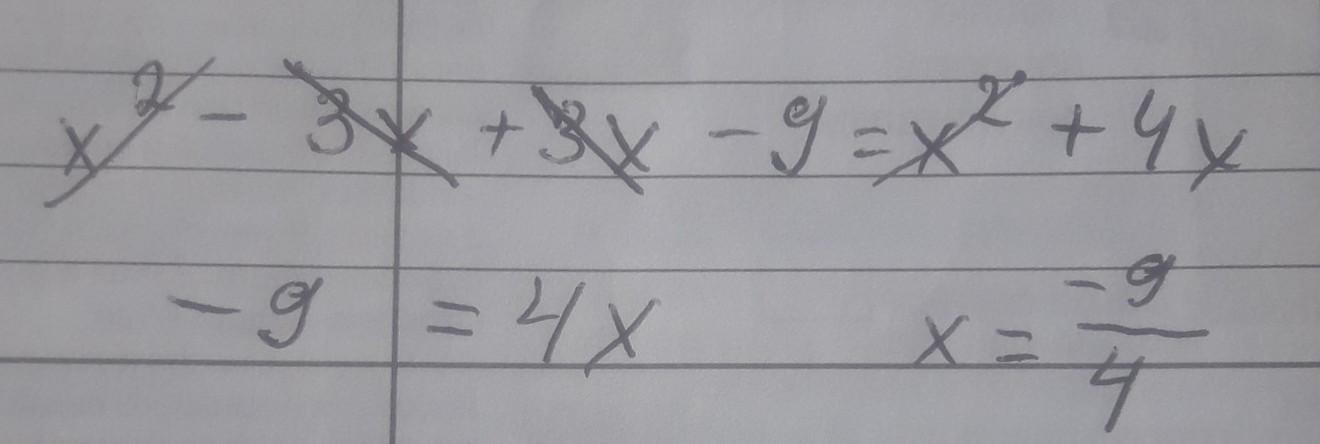 x² - 3x + 3x - 9 = x² + 4x
- 9 = 4x x = -9/4